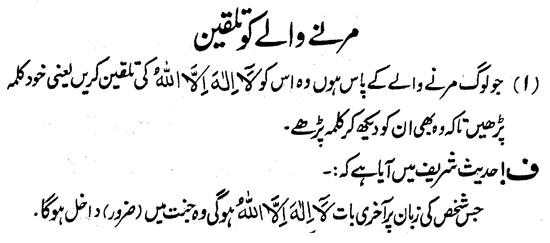 مرنے والے کو تلقین
(۱) جو لوگ مرنے والے کے پاس ہوں وہ اس کو لَآ اِلٰہَ اِلَّا اللہُ کی تلقین کریں یعنی خود کلمہ
پڑھیں تاکہ وہ بھی ان کو دیکھ کر کلمہ پڑھے۔
ف! حدیث شریف میں آیا ہے کہ:۔
جس شخص کی زبان پر آخری بات لَآ اِلٰہَ اِلَّا اللہُ ہوگی وہ جنت میں (ضرور) داخل ہوگا۔